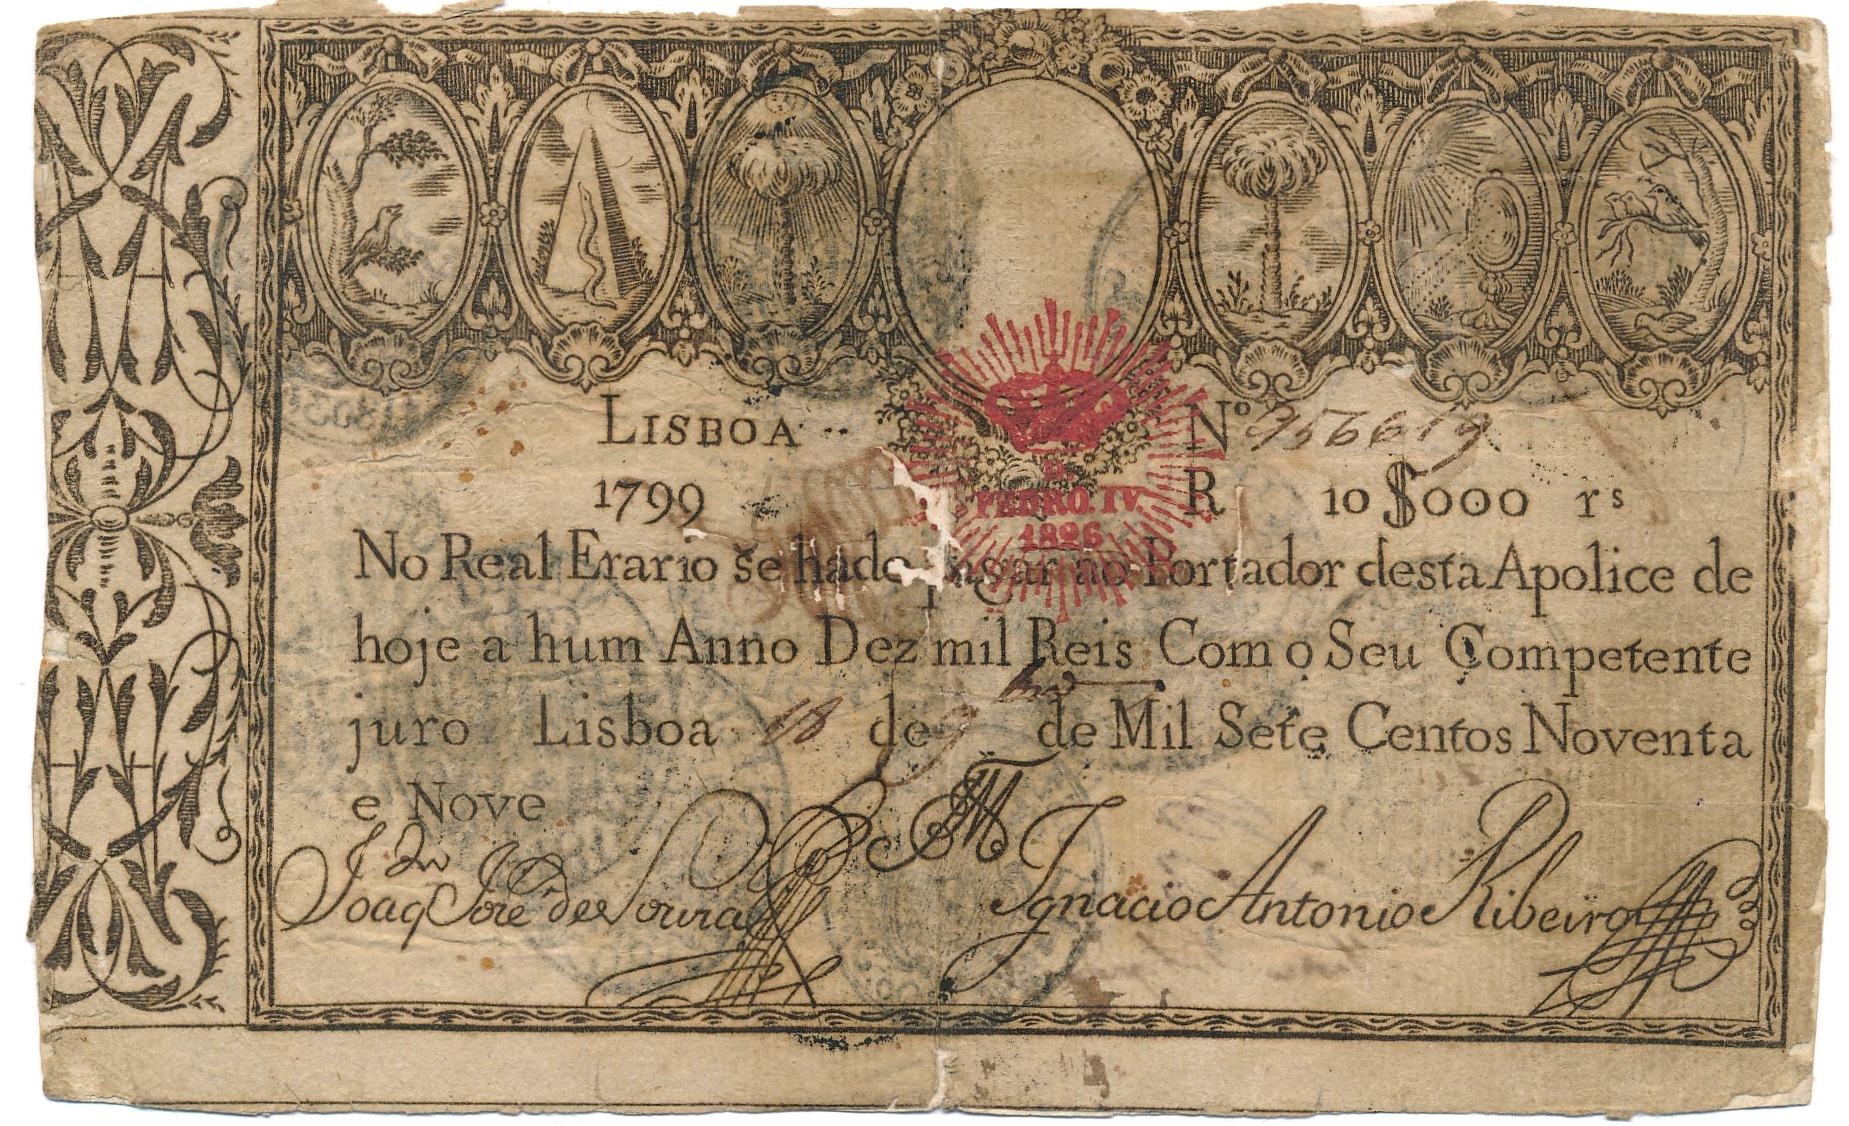 LISBOA
Nº 956619
1799
R 10$000 rs
D.
PEDRO. IV.
1826
No Real Erario se hade pagar ao Portador desta Apolice de
hoje a hum Anno Dez mil Reis Com o Seu Competente
juro Lisboa 18 de 9bro de Mil Sete Centos Noventa
e Nove
Joaqm José de Souza
Ignacio Antonio Ribeiro